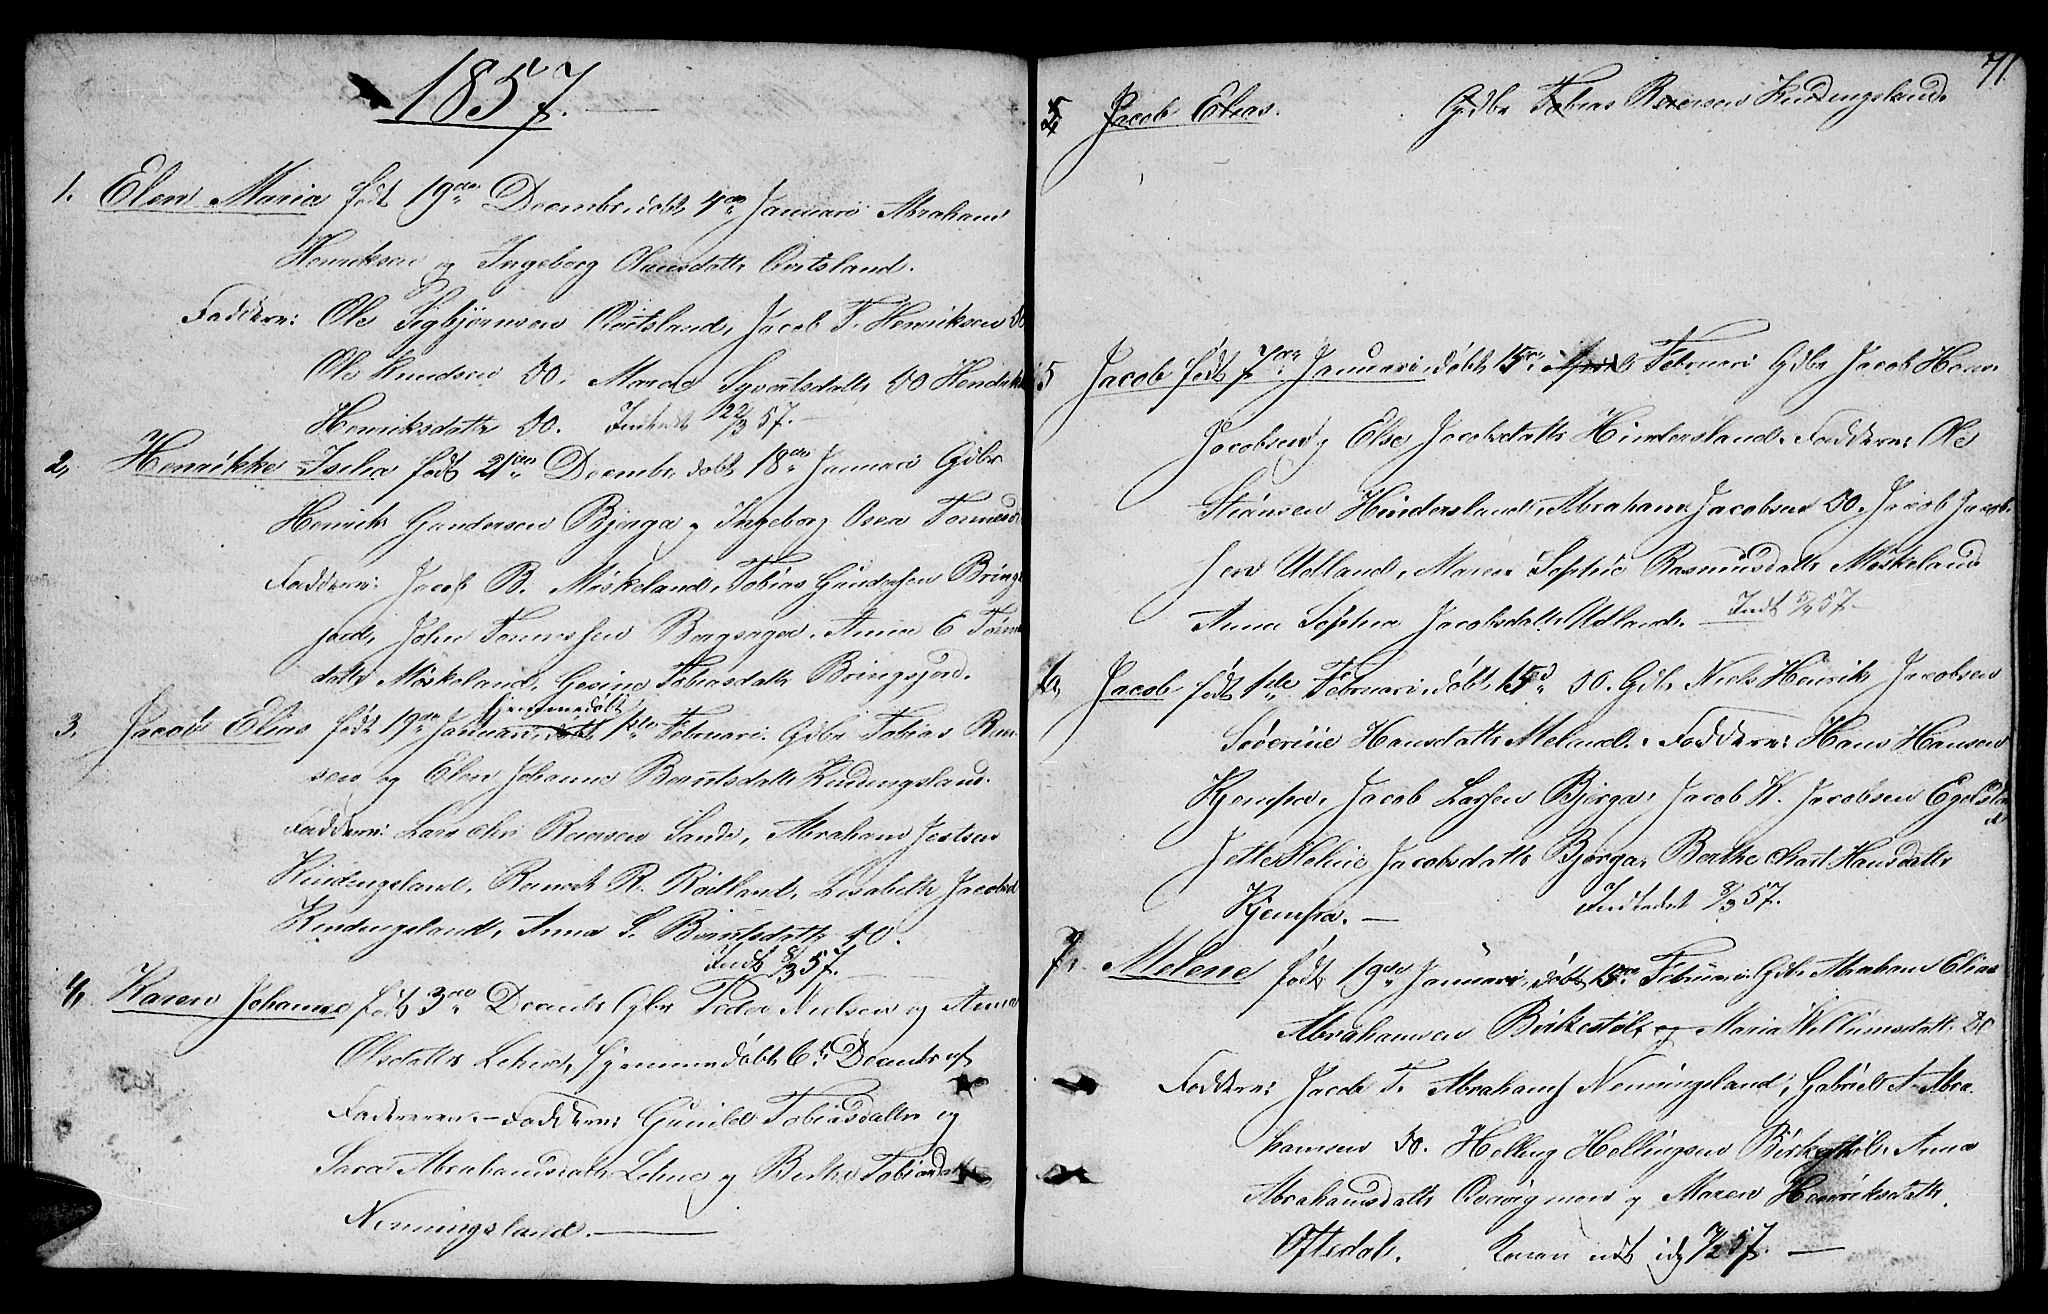 1857.
1. Elen Maria født 19de Decembr, døbt 4de Januari Abraham
Henriksen og Ingeborg Olausdattr Qvitsland.
Faddere: Ole Sigbjørnsen Qvitsland, Jacob T. Henriksen do
Ole Knudsen do. Maren Syvertsdattr do
Henriksdattr do. Indført 22/3 57.
2, Henrikke født 21de Decembr, døbt 18de Januari Gdbr
Henrik Gundersen Bjerga og Ingeborg Osea
Faddere: Jacob B. Møskeland, Tobias Gundersen Bring
jord, John Tønnessen Bergsager, Anna E
dattr Møskeland, Gesine Tobiasdattr Bringsjord.
hjemmedøbt
3. Jacob Elias født 19de Januar, døbt 1ste Februari Gdbr Tobias
sen og Elen Johanne Berntsdattr Kindingsland.
Faddere: Lars Chr Sande, Abraham
Kindingsland, R. Rødland, Lisabeth Jacobsd
Kindingsland, Anna S. Berntsdattr do.
Indt 8/3 57.
4, Karen Johanne født 3de Decembr Gbr Peder Nielsen og Anne
Olsdattr Lehne, hjemmedøbt 6te Decembr af
Faderen. – Faddere: Gunild Tobiasdattr og
Sara Abrahamsdattr Lehne og Berthe Tobiasdattr
Nenningsland.
71.
5, Jacob Elias. Gdbr Tobias Kindingsland.
5 Jacob født 7de Januari, døbt 15de April Februari Gdbr Jacob Hans
Jacobsen og Else Jacobsdattr Hindersland. Faddere: Ole
Stiansen Hindersland, Abraham Jacobsen do. Jacob Jacob-
sen Udland, Maren Sophie Rasmusdattr Møskeland
Anna Sophia Jacobsdattr Udland. Indt 5/4 57
6, Jacob født 1de Februari, døbt 15de do. Gdbr Niels Henrik Jacobsen
Søverine Hansdattr Meland. Faddere: Hans Hansen
Kjempa, Jacob Larsen Bjerga, Jacob K. Jacobsen
Jette Helene Jacobsdattr Bjerga, Berthe Charl Hansdattr
Kjempa. Indledet 8/3 57.
7, Melene født 19de Januari, døbt 15de Februari Gdbr Abraham Elias
Abrahamsen Birkestøl, og Maria Willumsdatt. do
Faddere: Jacob T. Abrahams Nenningsland, Gabriel T. Abra-
hamsen do. Helling Hellingsen Birkestøl. Anna
Abrahamsdattr og Maren Henriksdattr.
Oftedal. Konen indt 57.